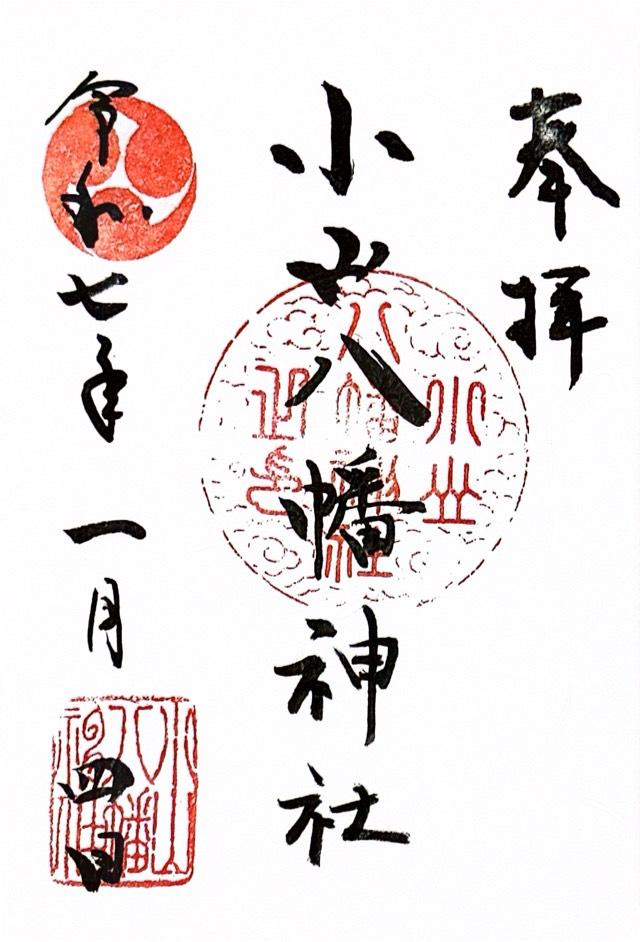 奉拝
小山八幡神社
令和七年一月四日